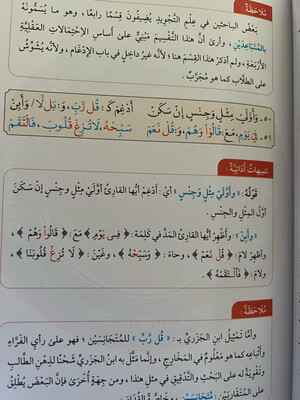 مُلَاحَظَةٌ:
بَعْضُ البَاحِثِينَ فِي عِلْمِ التَّجْوِيدِ يُضِيفُونَ قِسْمًا رَابِعًا، وَهُوَ مَا يُسَمُّونَهُ
بِالمُتَبَاعِدَيْنِ، وَأَرَىٰ أَنَّ هٰذَا التَّقْسِيمَ مَبْنِيٌّ عَلَىٰ أَسَاسِ الاحْتِمَالَاتِ العَقْلِيَّةِ
الأَرْبَعَةِ، وَلَمْ أَذْكُرْ هٰذَا القِسْمَ هُنَا؛ لِأَنَّهُ غَيْرُ دَاخِلٍ فِي بَابِ الإِدْغَامِ، وَلِأَنَّهُ يُشَوِّشُ
عَلَى الطُّلَّابِ كَمَا هُوَ مُجَرَّبٌ.
٥٠- وَأَوَّلَيْ مِثْلٍ وَجِنْسٍ إِنْ سَكَنْ أَدْغِمْ كَـ: قُل رَّبِّ، وَ: بَل لَّا / وَأَبِنْ
٥١- فِي يَوْمِ، مَعْ: قَالُوا وَهُمْ، وَ: قُلْ نَعَمْ سَبِّحْهُ، لَا تُزِغْ قُلُوبَ، فَالْتَقَمْ
تَنْبِيهَاتٌ أَدَائِيَّةٌ:
قَوْلُهُ: «وَأَوَّلَيْ مِثْلٍ وَجِنْسٍ» أَيْ: أَدْغِمْ أَيُّهَا القَارِئُ أَوَّلَيْ مِثْلٍ وَجِنْسٍ إِنْ سَكَنَ
أَوَّلُ المِثْلِ وَالجِنْسِ.
«وَأَبِنْ» وَأَظْهِرْ أَيُّهَا القَارِئُ المَدَّ فِي كَلِمَةِ: ﴿ فِى يَوْمٍ ﴾ مَعَ: ﴿ قَالُوا وَهُمْ ﴾،
وَأَظْهِرْ لَامَ: ﴿ قُلْ نَعَمْ ﴾، وَحَاءَ: ﴿ وَسَبِّحْهُ ﴾، وَغَيْنَ: ﴿ لَا تُزِغْ قُلُوبَنَا ﴾،
وَلَامَ: ﴿ فَالْتَقَمَهُ ﴾.
مُلَاحَظَةٌ:
وَأَمَّا تَمْثِيلُ ابْنِ الجَزَرِيِّ بـ: ﴿ قُل رَّبِّ ﴾ لِلْمُتَجَانِسَيْنِ؛ فَهُوَ عَلَىٰ رَأْيِ الفَرَّاءِ
وَأَتْبَاعِهِ كَمَا هُوَ مَعْلُومٌ فِي المَخَارِجِ، وَإِنَّمَا مَثَّلَ بِهِ ابْنُ الجَزَرِيِّ شَحْذًا لِذِهْنِ الطَّالِبِ
وَتَقْوِيَةً لَهُ عَلَى البَحْثِ وَالتَّدْقِيقِ فِي مِثْلِ هٰذَا، وَمِنْ جِهَةٍ أُخْرَىٰ فَإِنَّ البَعْضَ يُطْلِقُ
عَلَى المُتَقَارِبَيْنِ: مُتَجَانِسَيْنِ،